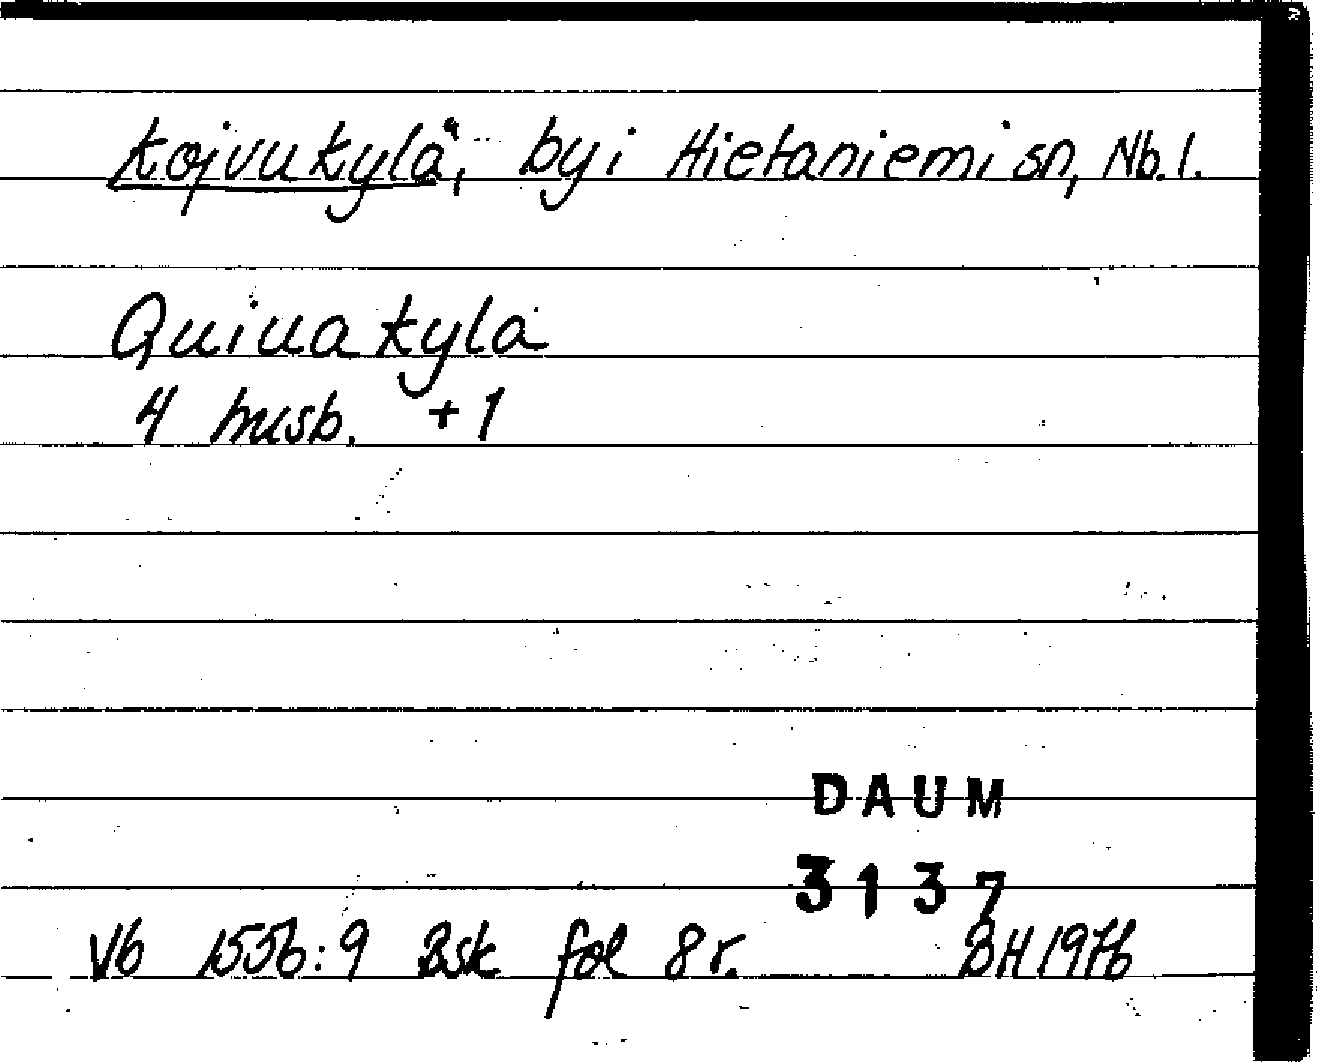 Kojvukylä, by i Hietaniemi sn, Nb. l.
Quiuakyla
4 husb. +1
DAUM
3137
Vb 1556:9 Bsk fol 8 r. BH 1976